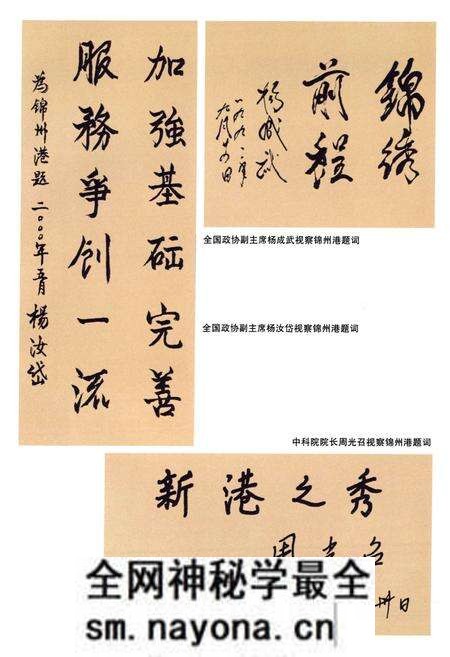 加強基础完善
服務爭创一流
為锦州港题 二〇〇〇年 楊汝岱
錦綉
前程
楊成武
一九九一年
九月十日
全国政协副主席杨成武视察锦州港题词
全国政协副主席杨汝岱视察锦州港题词
中科院院长周光召视察锦州港题词
新港之秀
周光召
卅日
全网神秘学最全
sm.nayona.cn